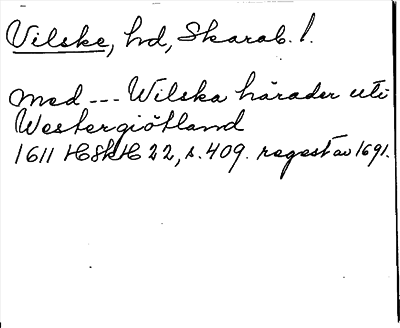 Vilske, hd, Skarab. l.
med --- Wilska härader uti
Westergiötland
1611 HSkH 22, s. 409. regest av 1691.